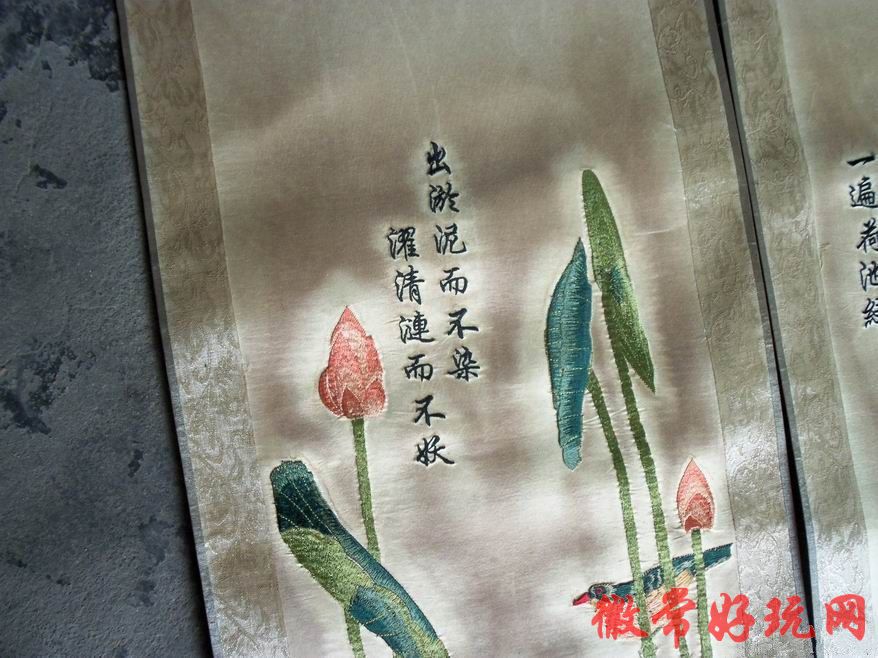 出淤泥而不染
濯清涟而不妖
一遍荷池经
徽常好玩网